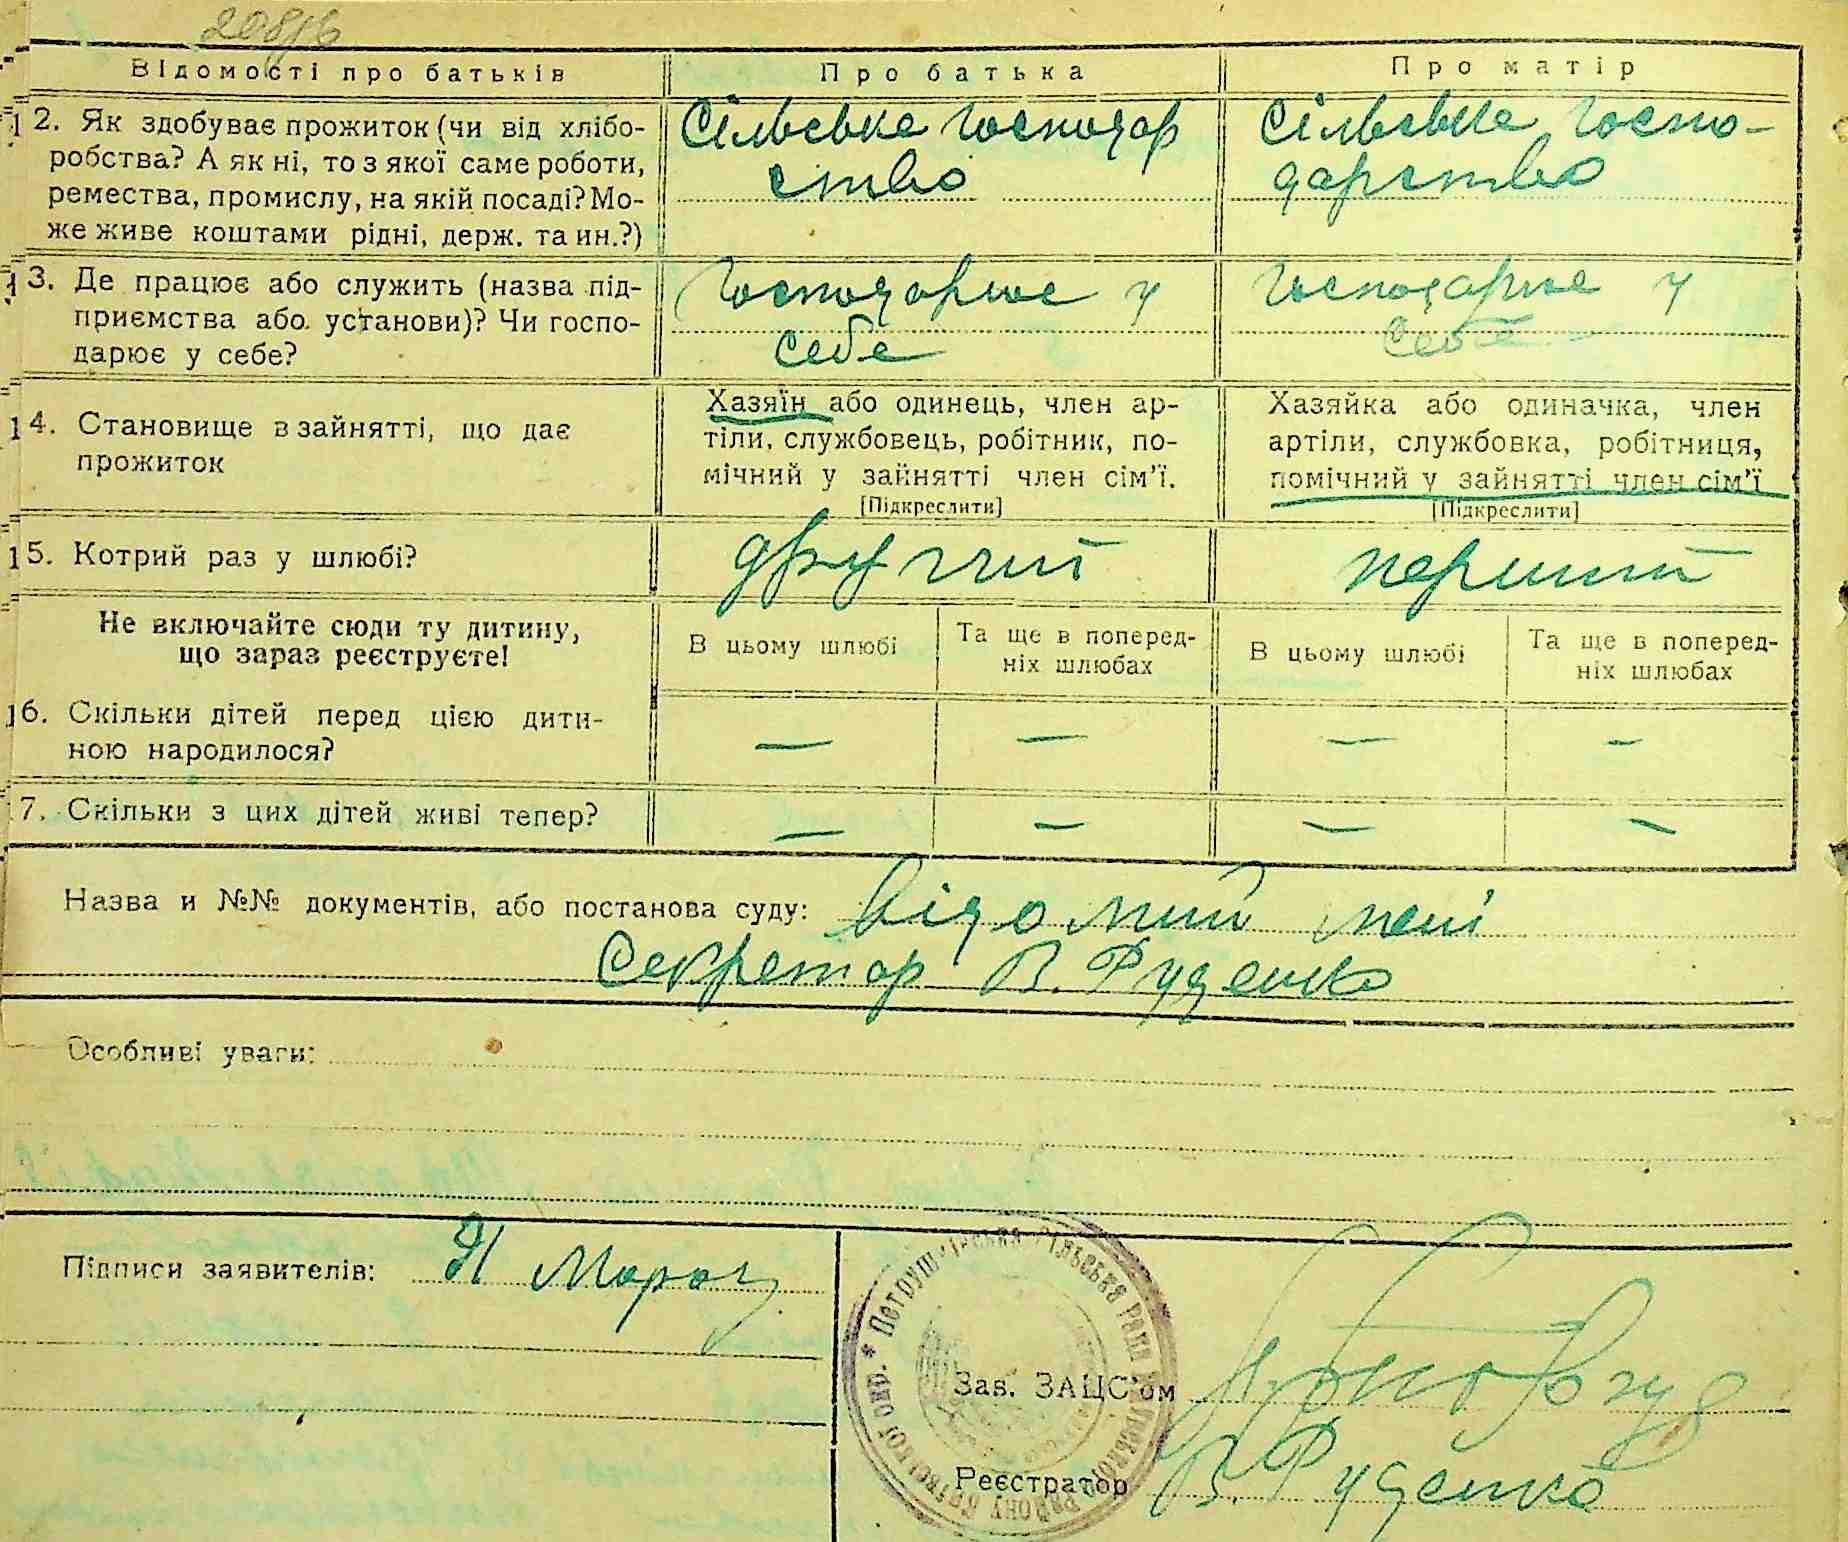 208/6
Відомості про батьків
Про батька
Про матір
12. Як здобуває прожиток (чи від хлібо-
робства? А як ні, то з якої саме роботи,
ремества, промислу, на якій посаді? Мо-
же живе коштами рідні, держ. та ин.?)
Сільське господар
ство
Сільське госпо-
дарство
13. Де працює або служить (назва під-
приємства або установи)? Чи госпо-
дарює у себе?
Господарює у
себе
Господарює у
себе
14. Становище в зайнятті, що дає
прожиток
Хазяїн або одинець, член ар-
тіли, службовець, робітник, по-
мічний у зайнятті член сім'ї.
[Підкреслити]
Хазяйка або одиначка, член
артіли, службовка, робітниця,
помічний у зайнятті член сім'ї
[Підкреслити]
15. Котрий раз у шлюбі?
другий
перший
Не включайте сюди ту дитину,
що зараз реєструєте!
В цьому шлюбі
Та ще в поперед-
ніх шлюбах
В цьому шлюбі
Та ще в поперед-
ніх шлюбах
16. Скільки дітей перед цією дити-
ною народилося?
— — — —
17. Скільки з цих дітей живі тепер?
— — — —
Назва и №№ документів, або постанова суду: відомий мені
Секретар В. Руденко
Особливі уваги:
Підписи заявителів: Я Мороз
Зав. ЗАЦС'ом
Реєстратор В. Руденко
сільська рада
району